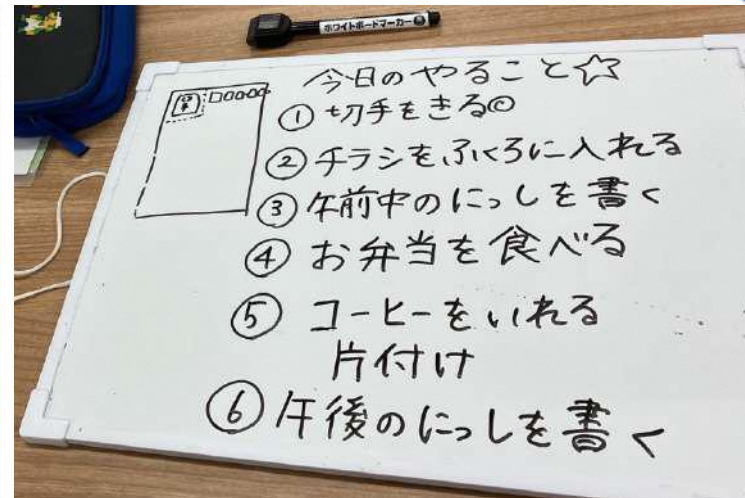 ホワイトボードマーカー
今日のやること☆
①切手をきる◎
②チラシをふくろに入れる
③午前中のにっしを書く
④お弁当を食べる
⑤コーヒーをいれる
片付け
⑥午後のにっしを書く